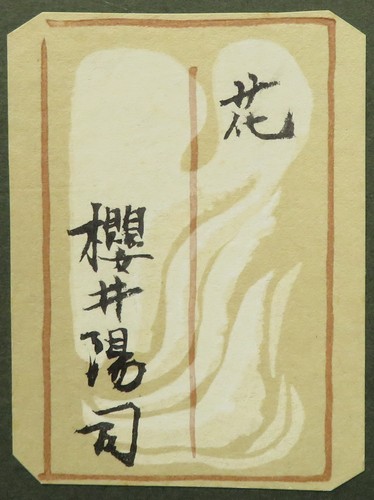 花
櫻井陽司